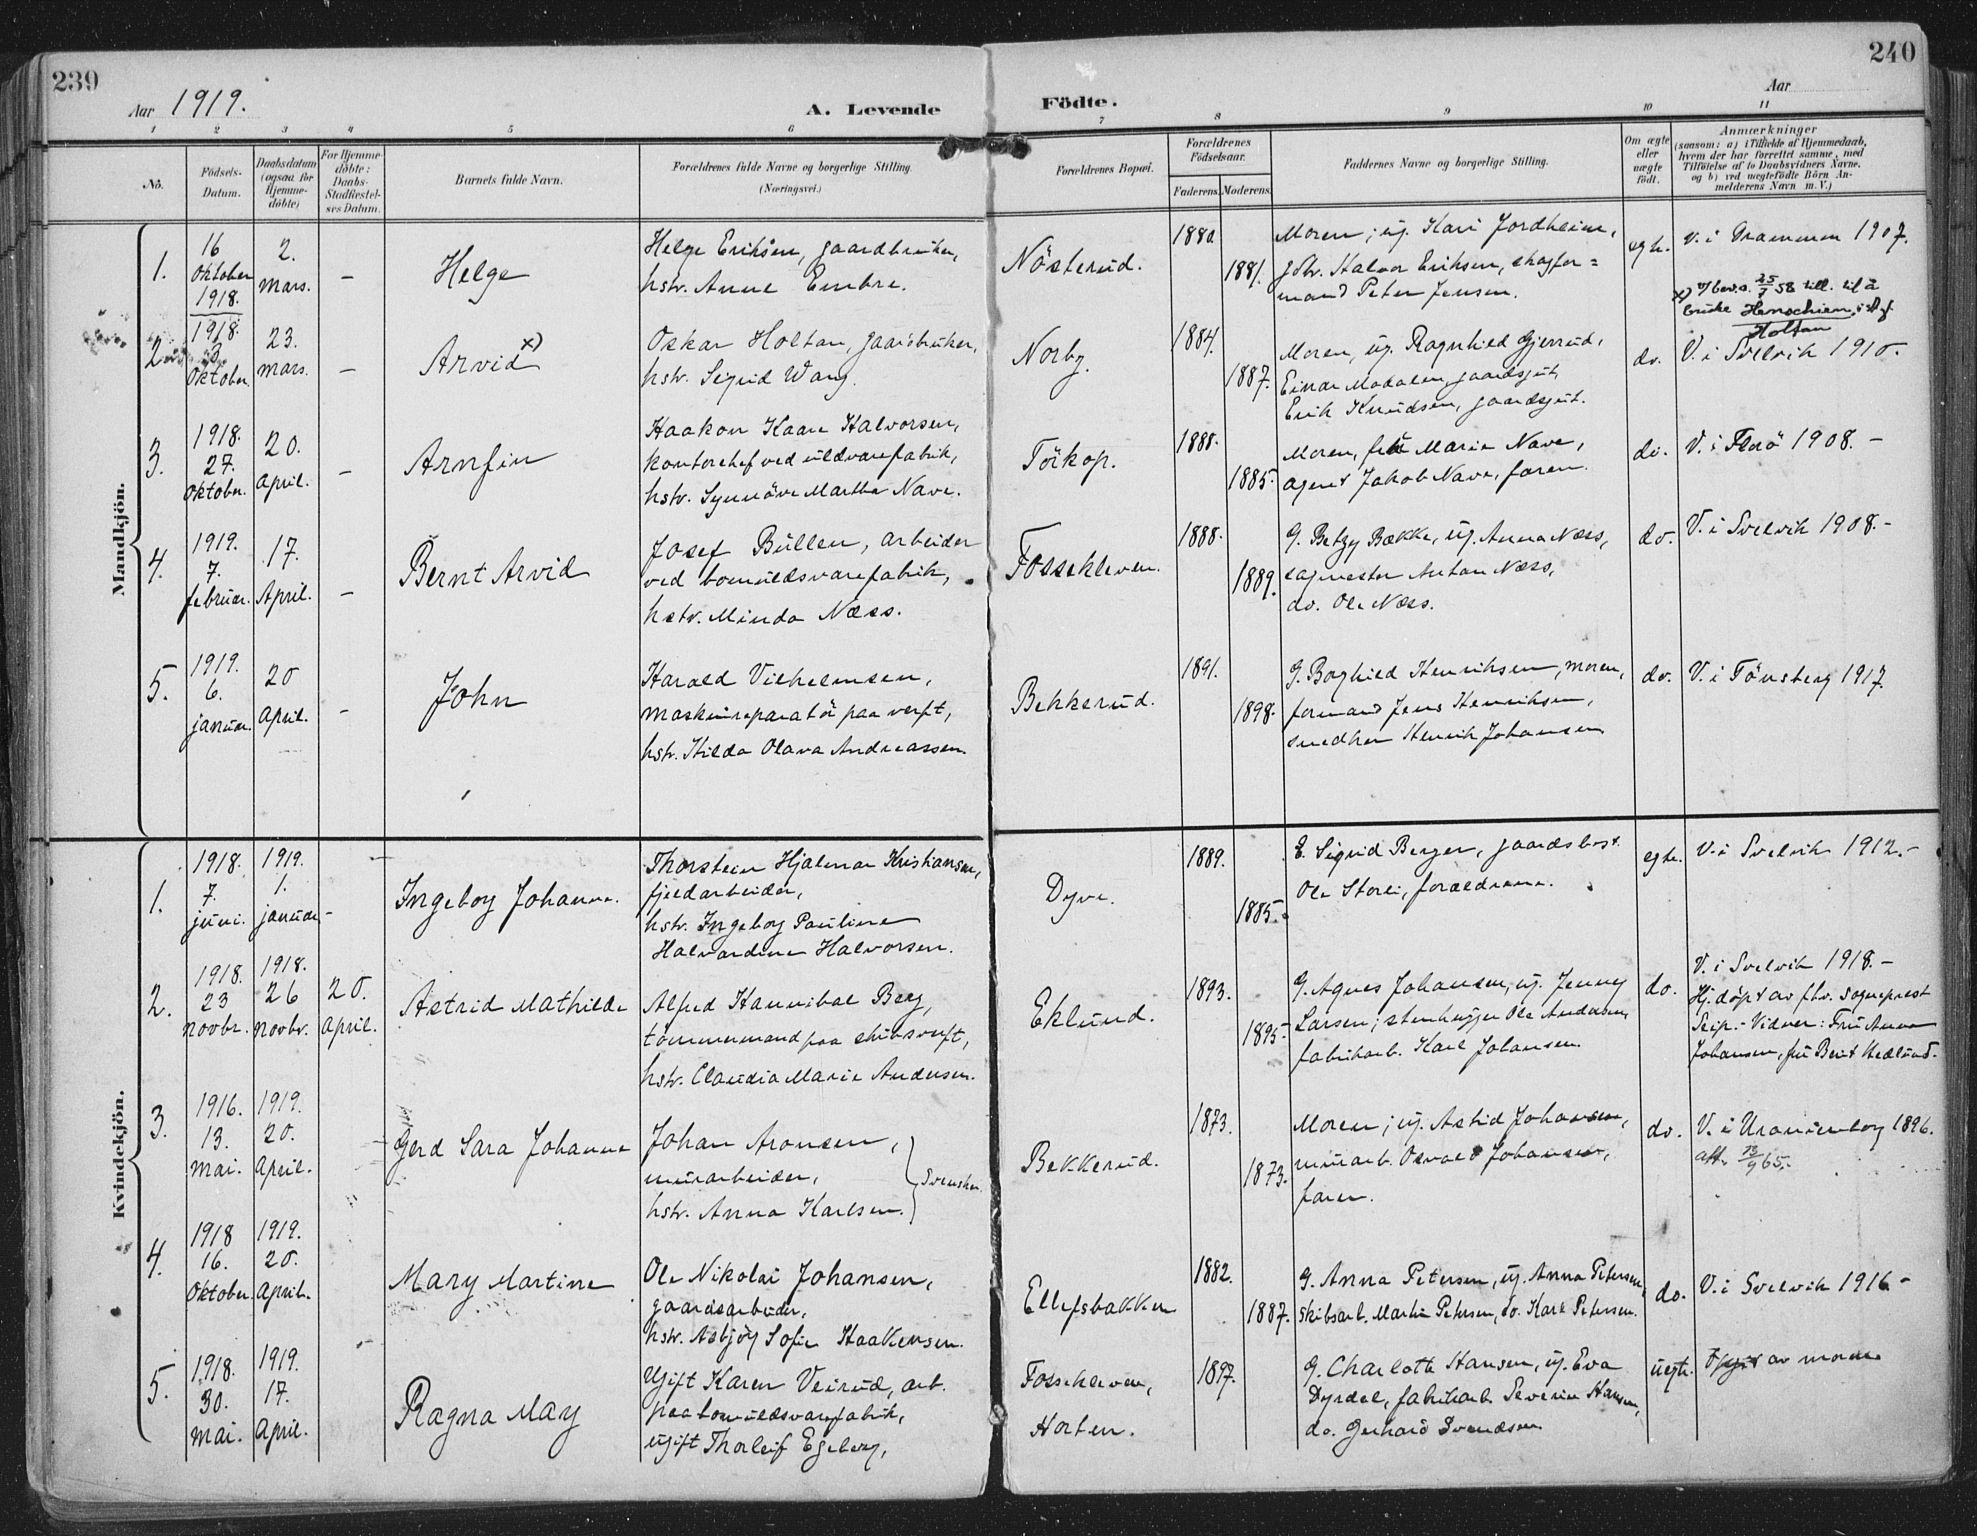 239
Aar 1919.
A. Levende
1 2 3 4 5 6
No.
Födsels-
Datum.
Daabsdatum
(ogsaa for
Hjemme-
döbte)
For Hjemme-
döbte:
Daabs-
Stadfæstel-
ses Datum.
Barnets fulde Navn.
Forældrenes fulde Navne og borgerlige Stilling.
(Næringsvei.)
Mandkjön.
1.
16
Oktober
1918.
2.
Mars.
–
Helge
Helge Eriksen, gaardbruker,
hstr. Anne Embre.
2.
1918
3
Oktober.
23.
Mars.
–
Arvid x)
Oskar Holtan, gaardbruker,
hstr. Sigrid Wang.
3.
1918.
27.
Oktober.
20.
April.
–
Arnfin
Haakon Kaare Halvorsen,
kontorchef ved uldvarefabrik,
hstr. Synnöve Martha Nave.
4.
1919.
7.
februar.
17.
April.
–
Bernt Arvid
Josef Bullen, arbeider
ved bomuldsvarefabrik,
hstr. Minda Næss.
5.
1919.
6.
januar.
20
April.
–
John
Harald Vilhelmsen,
maskinreparatör paa verft,
hstr. Hilda Olava Andreassen
Kvindekjön.
1.
1918.
7.
juni.
1919.
1.
januar
–
Ingeborg Johanne.
Thorstein Hjalmar Kristiansen,
fjeldarbeider,
hstr. Ingeborg Pauline
Halvardine Halvorsen.
2.
1918.
23
Novbr.
1918.
26
Novbr.
20.
April.
Astrid Mathilde
Alfred Hannibal Berg,
tömmermand paa skibsverft,
hstr. Claudia Marie Andersen.
3.
1916.
13.
Mai.
1919.
20.
April.
–
Gerd Sara Johanne
Johan Aronsen,
murarbeider,
hstr. Anna Karlsen.
Svensker.
4.
1918
16.
Oktober
1919.
20.
April.
Mary Martine
Ole Nikolai Johansen,
gaardsarbeider,
hstr. Asbjörg Sofie Haakensen.
5.
1918.
30.
Mai.
1919.
17.
April.
Ragna May
Ugift Karen Veirud, arb.
paa bomuldsvarefabrik,
ugift Thorleif Egeberg,
240
Aar
Födte.
7 8 9 10 11
Forældrenes Bopæl.
Forældrenes
Födselsaar.
Faderens. Moderens.
Faddernes Navne og borgerlige Stilling.
Om ægte
eller
uægte
födt.
Anmærkninger
(saasom: a) i Tilfælde af Hjemmedaab,
hvem der har forrettet samme, med
Tilföielse af to Daabsvidners Navne.
og b) ved uegtefödte Börn An-
melderens Navn m. V.)
Nösterud.
1880.
1881.
Moren; ug. Kari Jordheim,
gbr. Halvor Eriksen, skogfor=
mand Peter Jensen.
egte.
V. i Drammen 1907.
x) v/bev. a. 25/7 58 till. til å
bruke Henschien, istf.
Holtan
Norby.
1884.
1887.
Moren, ug. Ragnhild Gjerrud,
Einar Modalen, gaardsgut,
Erik Knudsen, gaardsgut.
do.
V. i Svelvik 1910.
Törkop.
1888.
1885.
Moren, fru Marie Nave,
agent Jakob Nave, faren.
do.
V. i Florö 1908. –
Fossekleven.
1888.
1889.
G. Betzy Bække, ug. Anna Næss,
sagmester Anton Næss,
do. Ole Næss.
do.
V. i Svelvik 1908. –
Bekkerud.
1891.
1898.
G. Borghild Henriksen, moren,
formand Jens Henriksen,
snedker Henrik Johansen
do.
V. i Tönsberg 1917.
Dyve.
1889.
1885.
E. Sigrid Berger, gaardsbest.
Ole Storli, forældrene.
egte.
V. i Svelvik 1912. –
Eklund.
1893.
1895
G. Agnes Johansen, ug. Jenny
Larsen; stenhugger Ole Andersen,
fabrikarb. Karl Johansen.
do.
V. i Svelvik 1918. –
Hj. döpt av fhv. sogneprest
Seip. – Vidner: Fru Anna
Johansen, fru Berit Hedlund.
Bekkerud.
1873.
1873.
Moren; ug. Astrid Johansen,
murarb. Osvald Johansen,
faren.
do.
V. i Uranienborg 1896.
att. 13/9 65.
Ellefsbakken
1882.
1887.
G. Anna Petersen, ug. Anna Petersen,
skibsarb. Martin Petersen, do. Karl Petersen.
do.
V. i Svelvik 1916 –
Fossekleven,
Horten.
1897.
G. Charlotte Hansen, ug. Eva
Dyrdal, fabrikarb. Severin Hansen,
do. Gerhard Svendsen
uegte.
av moren